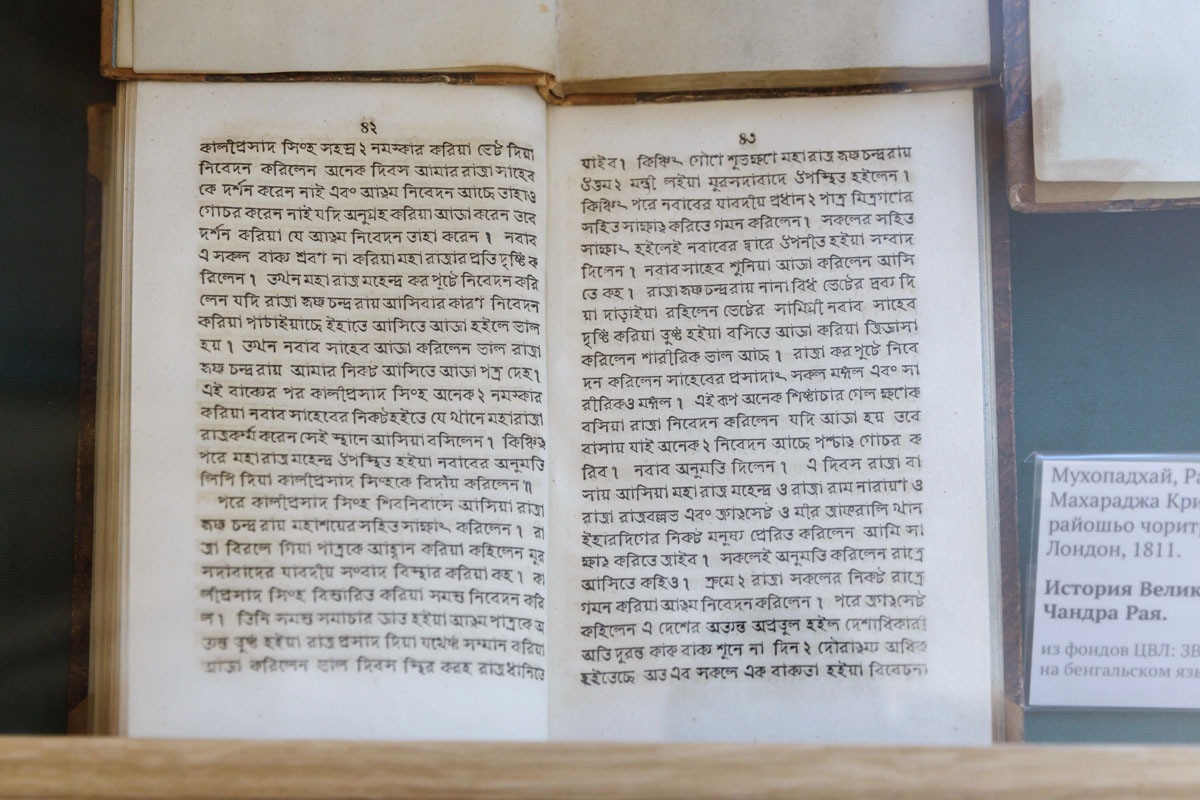 ৪২
কালীপ্রসাদ সিংহ সহস্র ২ নমস্কার করিয়া ভেট দিয়া
নিবেদন করিলেন অনেক দিবস আমার রাজা সাহেব
কে দর্শন করেন নাই এবং আত্ম নিবেদন আছে তাহাও
গোচর করেন নাই যদি অনুগ্রহ করিয়া আজ্ঞা করেন তবে
দর্শন করিয়া যে আত্ম নিবেদন তাহা করেন । নবাব
এ সকল বাক্য শ্রবণ না করিয়া মহা রাজার প্রতি দৃষ্টি ক
রিলেন । তখন মহা রাজা মহেন্দ্র কর পুটে নিবেদন করি
লেন যদি রাজা কৃষ্ণ চন্দ্র রায় আসিবার কারণ নিবেদন
করিয়া পাঠাইয়াছে ইহাতে আসিতে আজ্ঞা হইলে ভাল
হয় । তখন নবাব সাহেব আজ্ঞা করিলেন ভাল রাজা
কৃষ্ণ চন্দ্র রায় আমার নিকট আসিতে আজ্ঞা পত্র দেহ ।
এই বাক্যের পর কালীপ্রসাদ সিংহ অনেক ২ নমস্কার
করিয়া নবাব সাহেবের নিকটহইতে যে খানে মহারাজা
রাজকর্ম্ম করেন সেই স্থানে আসিয়া বসিলেন । কিঞ্চিৎ
পরে মহা রাজা মহেন্দ্র উপস্থিত হইয়া নবাবের অনুমতি
লিপি দিয়া কালীপ্রসাদ সিংহকে বিদায় করিলেন ॥
পরে কালীপ্রসাদ সিংহ শিবনিবাসে আসিয়া রাজা
কৃষ্ণ চন্দ্র রায় মহাশয়ের সহিত সাক্ষাৎ করিলেন । রা
জা বিরলে গিয়া পাত্রকে আহ্বান করিয়া কহিলেন মুর
সদাবাদের যাবদীয় সংবাদ বিস্তার করিয়া কহ । কা
লীপ্রসাদ সিংহ বিস্তারিত করিয়া সমস্ত নিবেদন করি
ল । তিনি সমস্ত সমাচার জ্ঞাত হইয়া আত্ম পাত্রকে অ
ত্যন্ত তুষ্ট হইয়া রাজ প্রসাদ দিয়া যথেষ্ট সম্মান করিয়া
আজ্ঞা করিলেন ভাল দিবস স্থির করহ রাজধানিতে
৪৩
যাইব । কিঞ্চিৎ গৌণে শুভক্ষণে মহা রাজা কৃষ্ণ চন্দ্র রায়
উত্তম ২ মন্ত্রী লইয়া মুরসদাবাদে উপস্থিত হইলেন ।
কিঞ্চিৎ পরে নবাবের যাবদীয় প্রধান ২ পাত্র মিত্রগণের
সহিত সাক্ষাৎ করিতে গমন করিলেন । সকলের সহিত
সাক্ষাৎ হইলেই নবাবের দ্বারে উপনীত হইয়া সম্বাদ
দিলেন । নবাব সাহেব শুনিয়া আজ্ঞা করিলেন আসি
তে কহ । রাজা কৃষ্ণ চন্দ্র রায় নানা বিধ ভেটের দ্রব্য দি
য়া দাড়াইয়া রহিলেন ভেটের সামিগ্রী নবাব সাহেব
দৃষ্টি করিয়া তুষ্ট হইয়া বসিতে আজ্ঞা করিয়া জিজ্ঞাসা
করিলেন শারীরিক ভাল আছ । রাজা কর পুটে নিবে
দন করিলেন সাহেবের প্রসাদাৎ সকল মঙ্গল এবং সা
রীরিকও মঙ্গল । এই রূপ অনেক শিষ্টাচার গেল ক্ষণেক
বসিয়া রাজা নিবেদন করিলেন যদি আজ্ঞা হয় তবে
বাসায় যাই অনেক ২ নিবেদন আছে পশ্চাৎ গোচর ক
রিব । নবাব অনুমতি দিলেন । এ দিবস রাজা বা
সায় আসিয়া মহা রাজা মহেন্দ্র ও রাজা রাম নারায়ণ ও
রাজা রাজবল্লভ এবং জগৎসেট ও মীর জাফরালি খান
ইহারদিগের নিকট মনুষ্য প্রেরিত করিলেন আমি সা
ক্ষাৎ করিতে জাইব । সকলেই অনুমতি করিলেন রাত্রে
আসিতে কহিও । ক্রমে ২ রাজা সকলের নিকট রাত্রে
গমন করিয়া আত্ম নিবেদন করিলেন । পরে জগৎসেট
কহিলেন এ দেশের অত্যন্ত অপ্রতুল হইল দেশাধিকারী
অতি দুরন্ত কারু বাক্য শুনে না দিন ২ দৌরাত্ম্য অধিক
হইতেছে অত এব সকলে এক বাক্যতা হইয়া বিবেচনা
Мухопадхай, Ра
Махараджа Кри
районьо чорит
Лондон, 1811.
История Велик
Чандра Рая.
из фондов ЦВЛ: ЗВ
на бенгальском язы